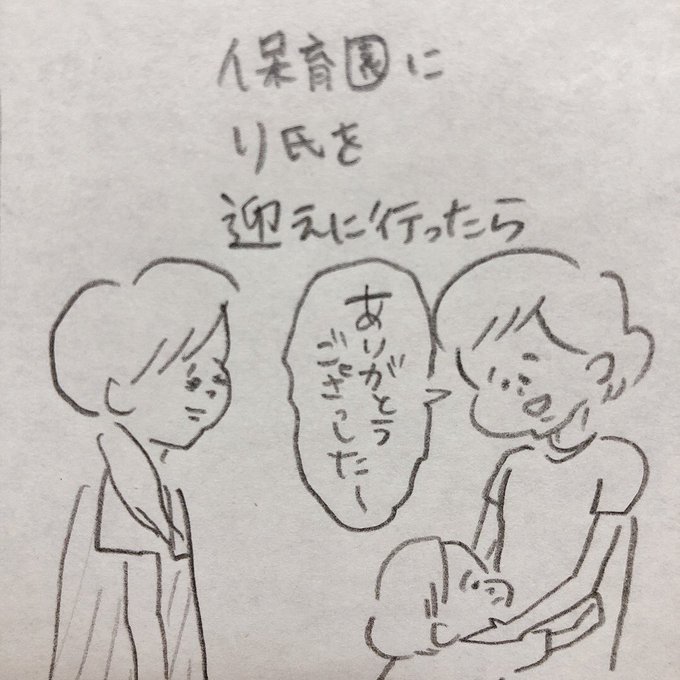 保育園に
り氏を
迎えに行ったら
ありがとう
ござっした〜